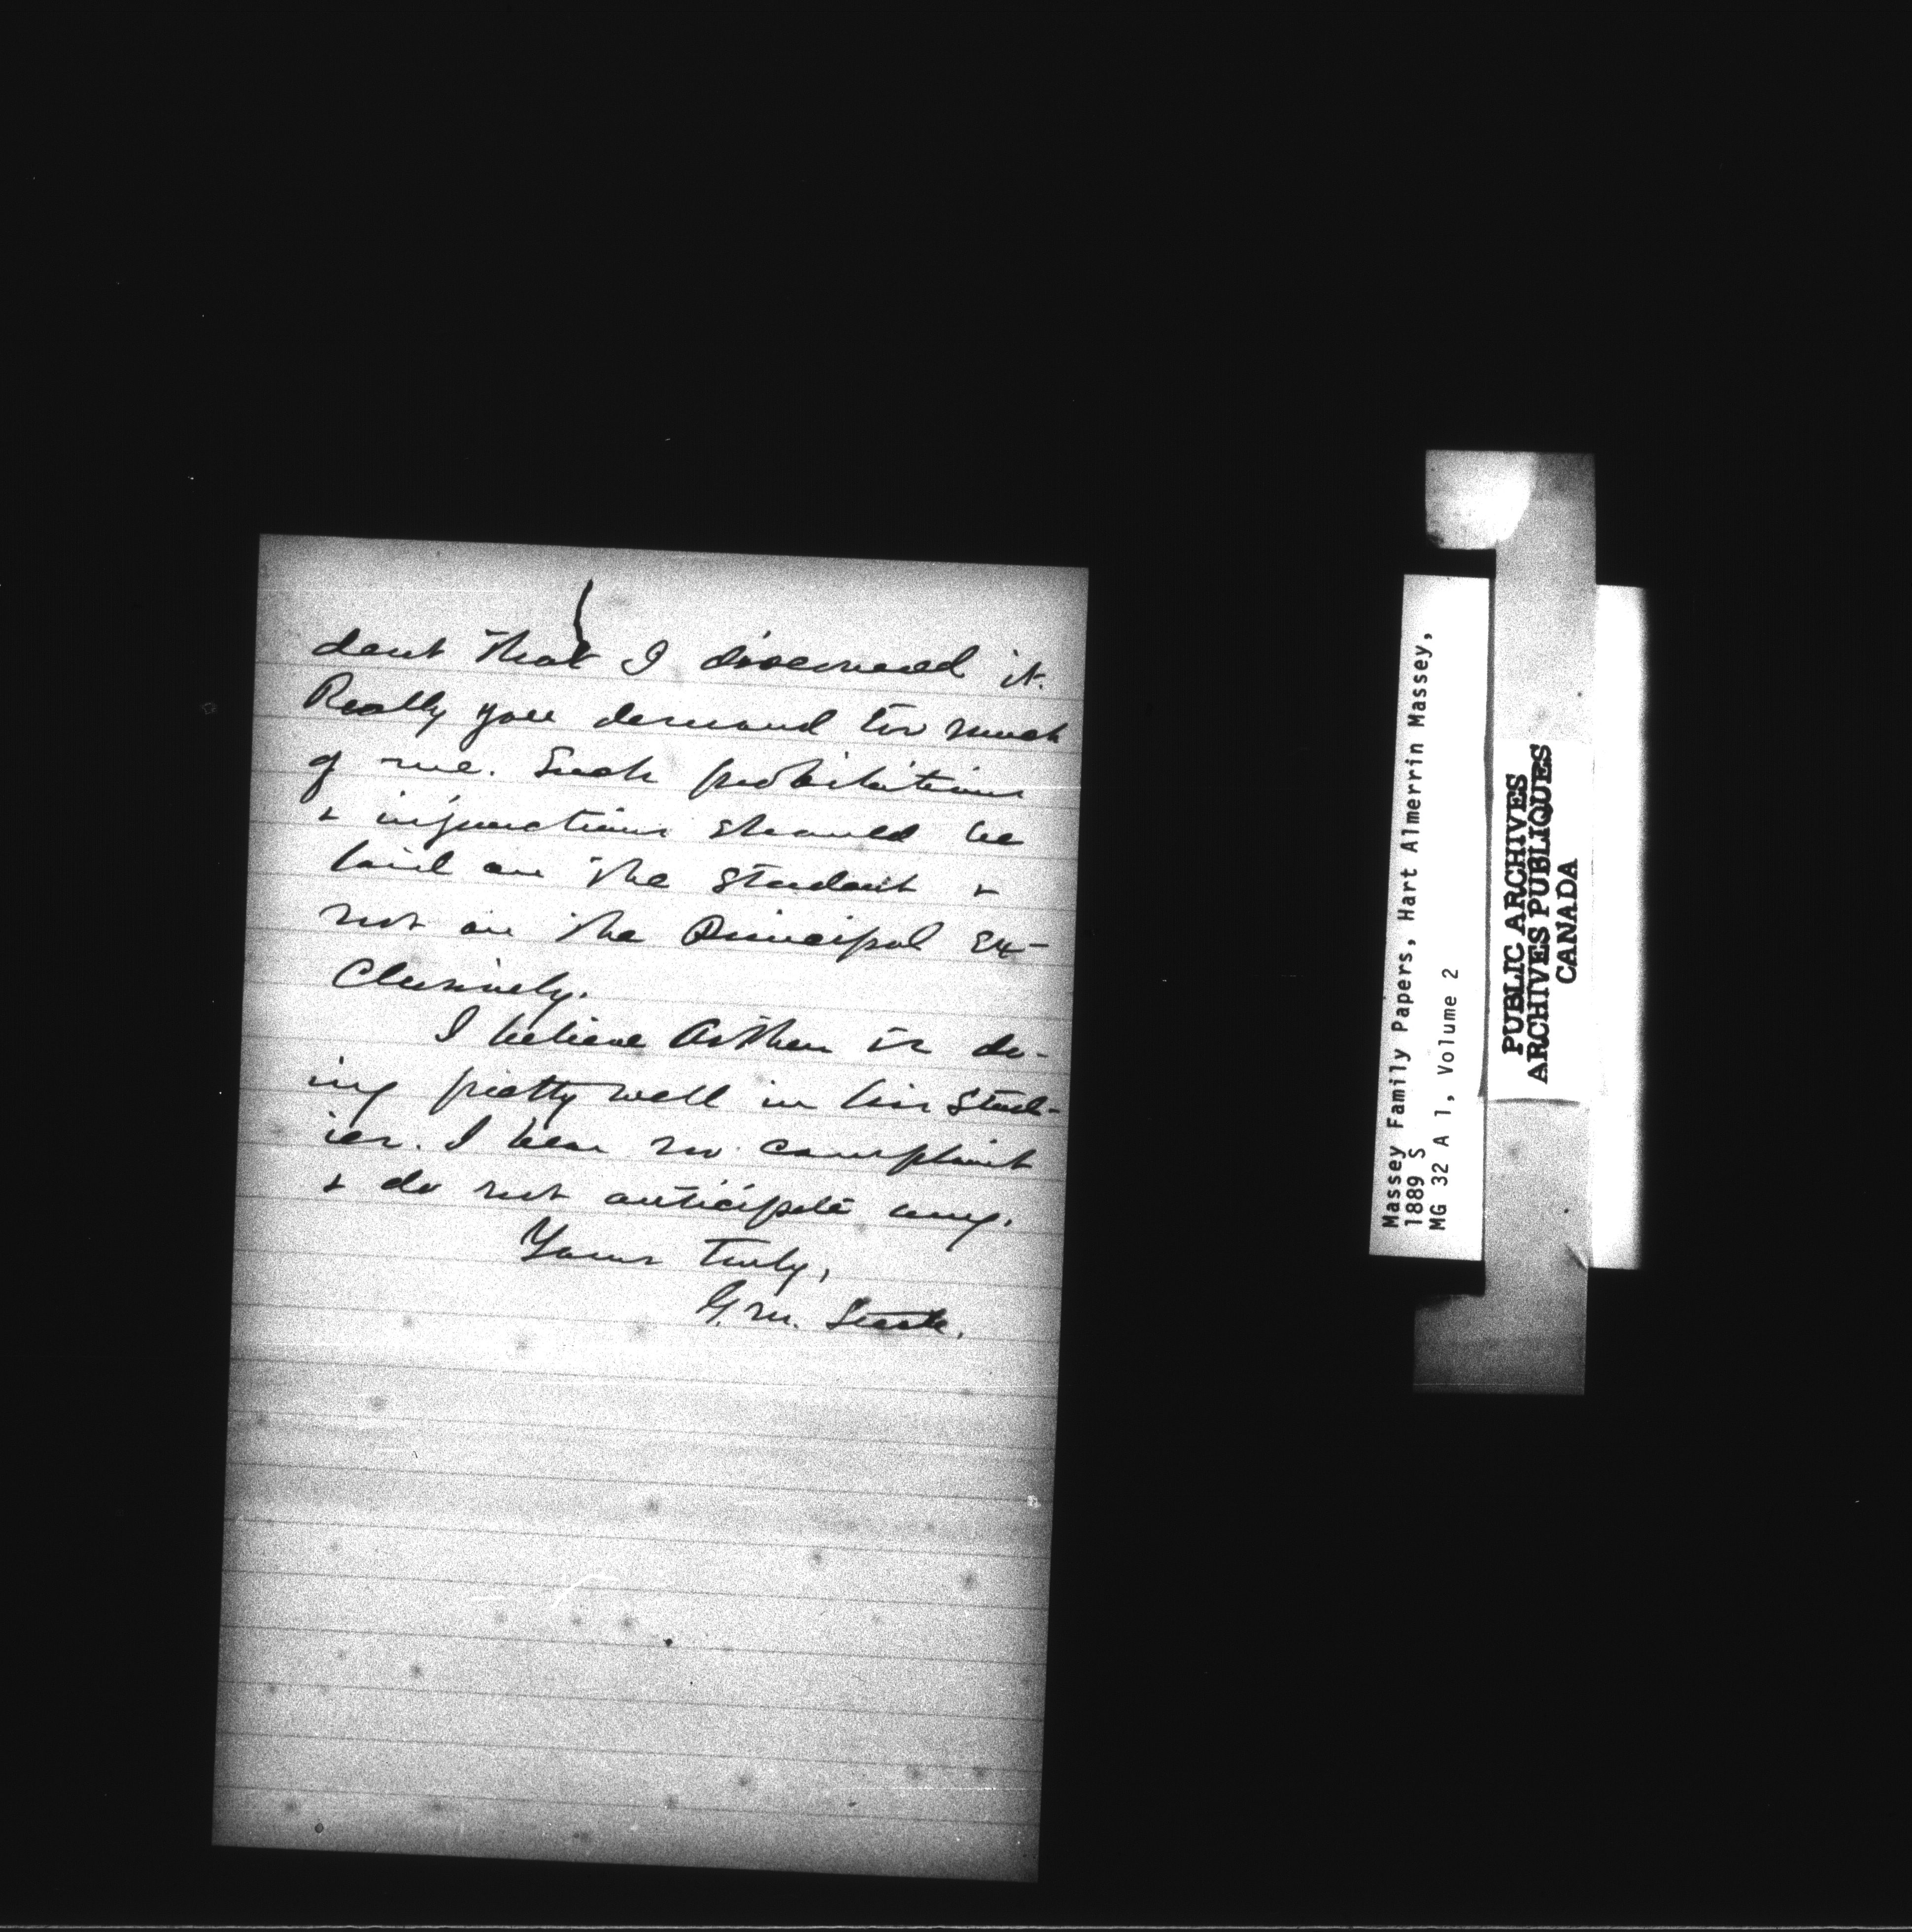 dent that I discerned it.
Really you demand too much
of me. Such prohibitions
& injunctions should be
laid on the student &
not on the Principal ex-
clusively.
I believe Arthur is do-
ing pretty well in his stud-
ies. I hear no complaint
& do not anticipate any.
Yours truly,
G. M. Steele.
Massey Family Papers, Hart Almerrin Massey,
1889 S
MG 32 A 1, Volume 2
PUBLIC ARCHIVES
ARCHIVES PUBLIQUES
CANADA